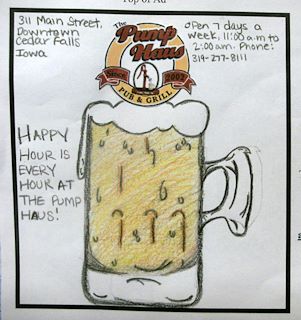 Top of Ad
311 Main Street,
Downtown
Cedar Falls
Iowa
The
Pump
Haus
Since 2002
PUB & GRILL
Open 7 days a
week, 11:00 a.m to
2:00 am. Phone:
319-277-8111
HAPPY
HOUR IS
EVERY
HOUR AT
THE PUMP
HAUS!